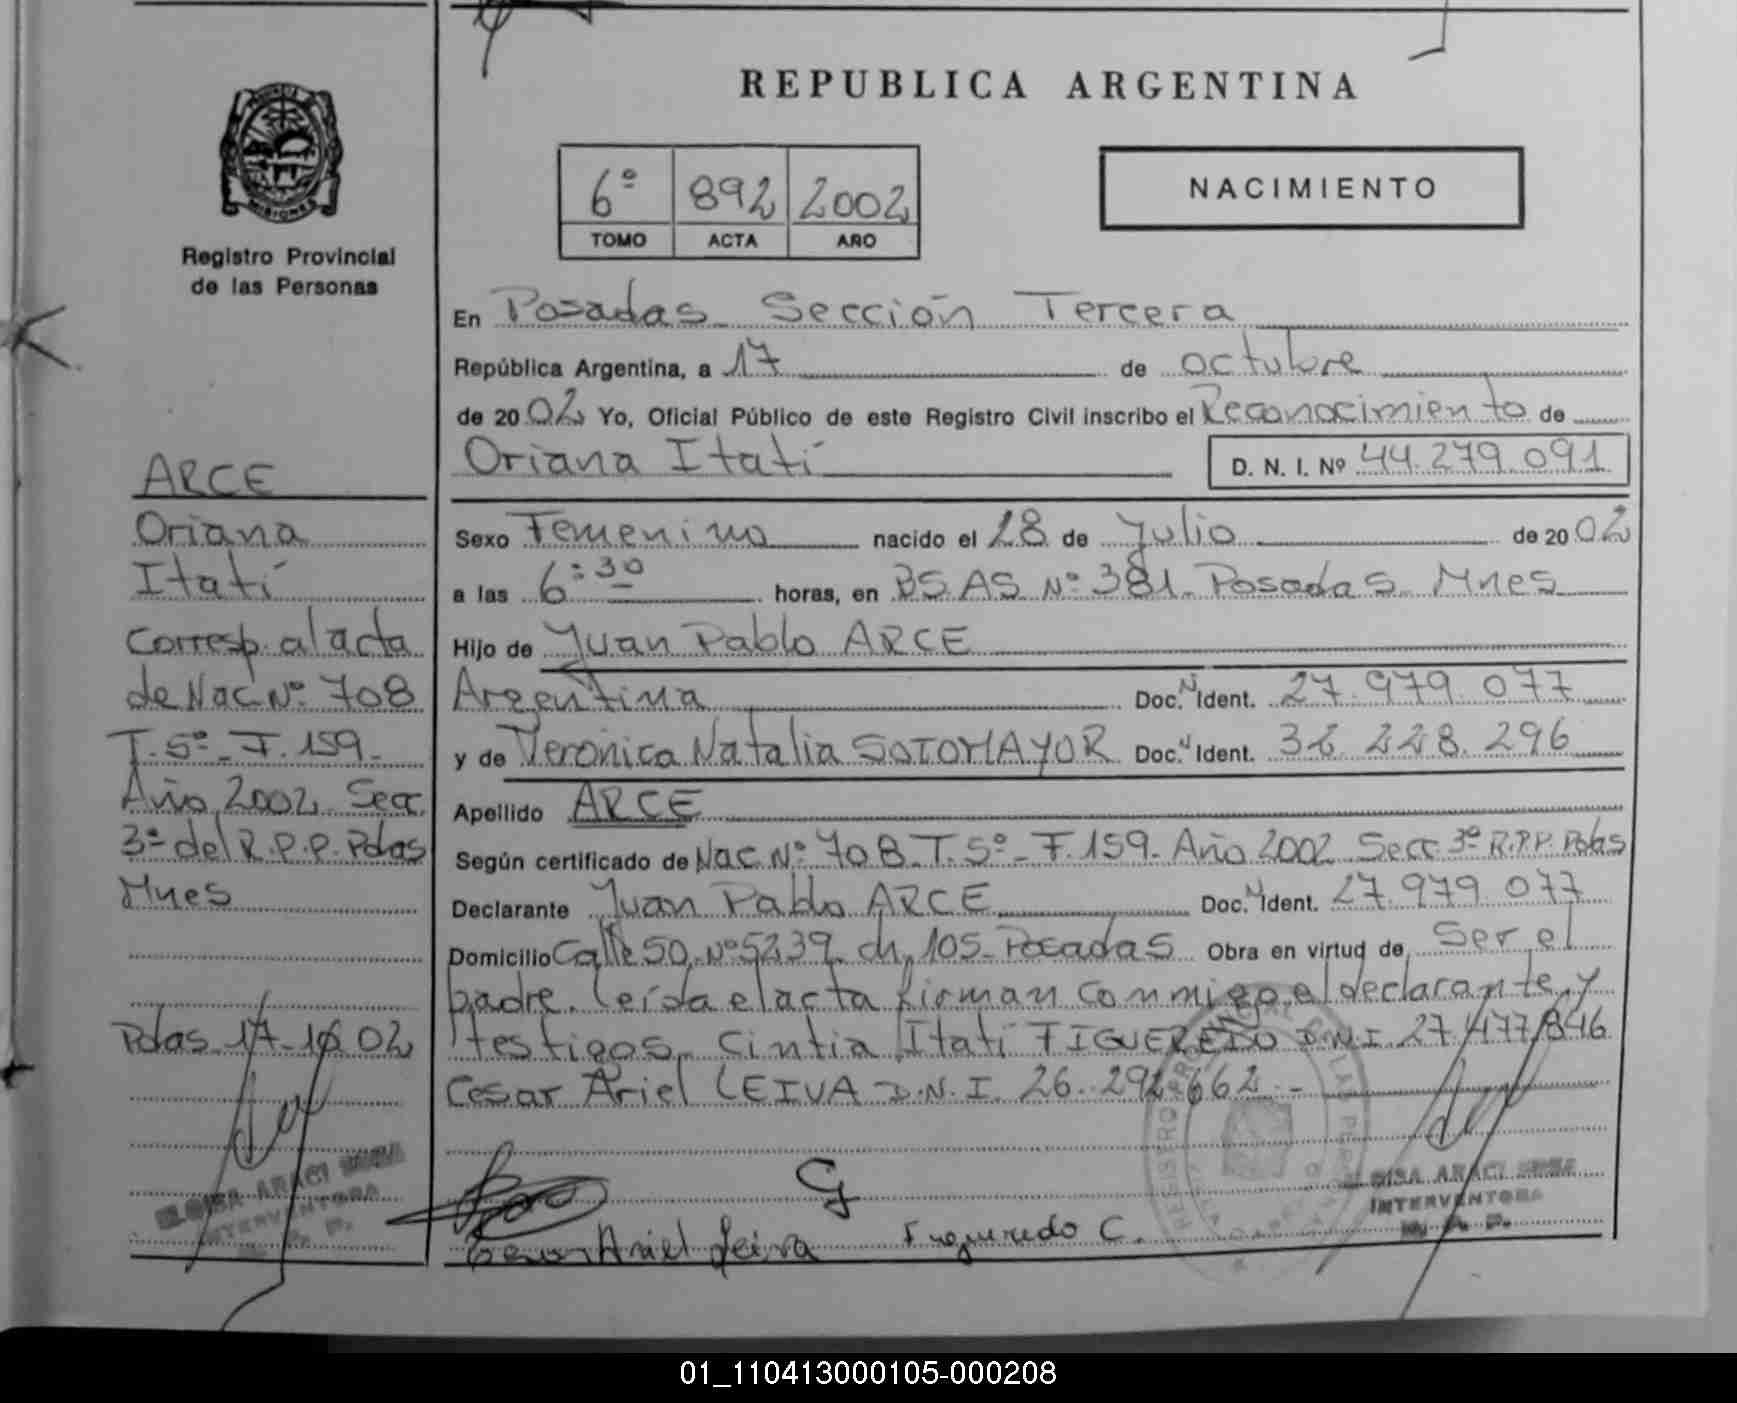 REPUBLICA ARGENTINA
PROVINCIA DE
MISIONES
Registro Provincial
de las Personas
6º 892 2002
TOMO ACTA AÑO
NACIMIENTO
En Posadas Sección Tercera
República Argentina, a 17 de octubre
de 2002 Yo, Oficial Público de este Registro Civil inscribo el Reconocimiento de
Oriana Itatí D. N. I. Nº 44.279.091
Sexo Femenino nacido el 28 de Julio de 2002
a las 6:30 horas, en BS AS Nº 381. Posadas. Mnes
Hijo de Juan Pablo ARCE
Argentina Doc. N Ident. 27.979.077
y de Verónica Natalia SOTOMAYOR Doc. N Ident. 32.228.296
Apellido ARCE
Según certificado de Nac Nº 708. T. 5º - F. 159. Año 2002 Secc 3º R.P.P. Pdas
Declarante Juan Pablo ARCE Doc. N Ident. 27.979.077
Domicilio Calle 50. Nº 5239 ch. 105. Posadas Obra en virtud de Ser el
padre. Leída el acta firman conmigo el declarante y
testigos. Cintia Itatí FIGUEREDO D.N.I. 27.477.846
Cesar Ariel LEIVA D.N.I. 26.292.662.-
Cesar Ariel Leiva Figueredo C.
INTERVENTORA
ARCE
Oriana
Itatí
Corresp. al acta
de Nac Nº 708
T. 5º - F. 159.
Año 2002. Secc.
3º del R.P.P. Pdas
Mnes
Pdas 17-10 02
INTERVENTORA
01_110413000105-000208